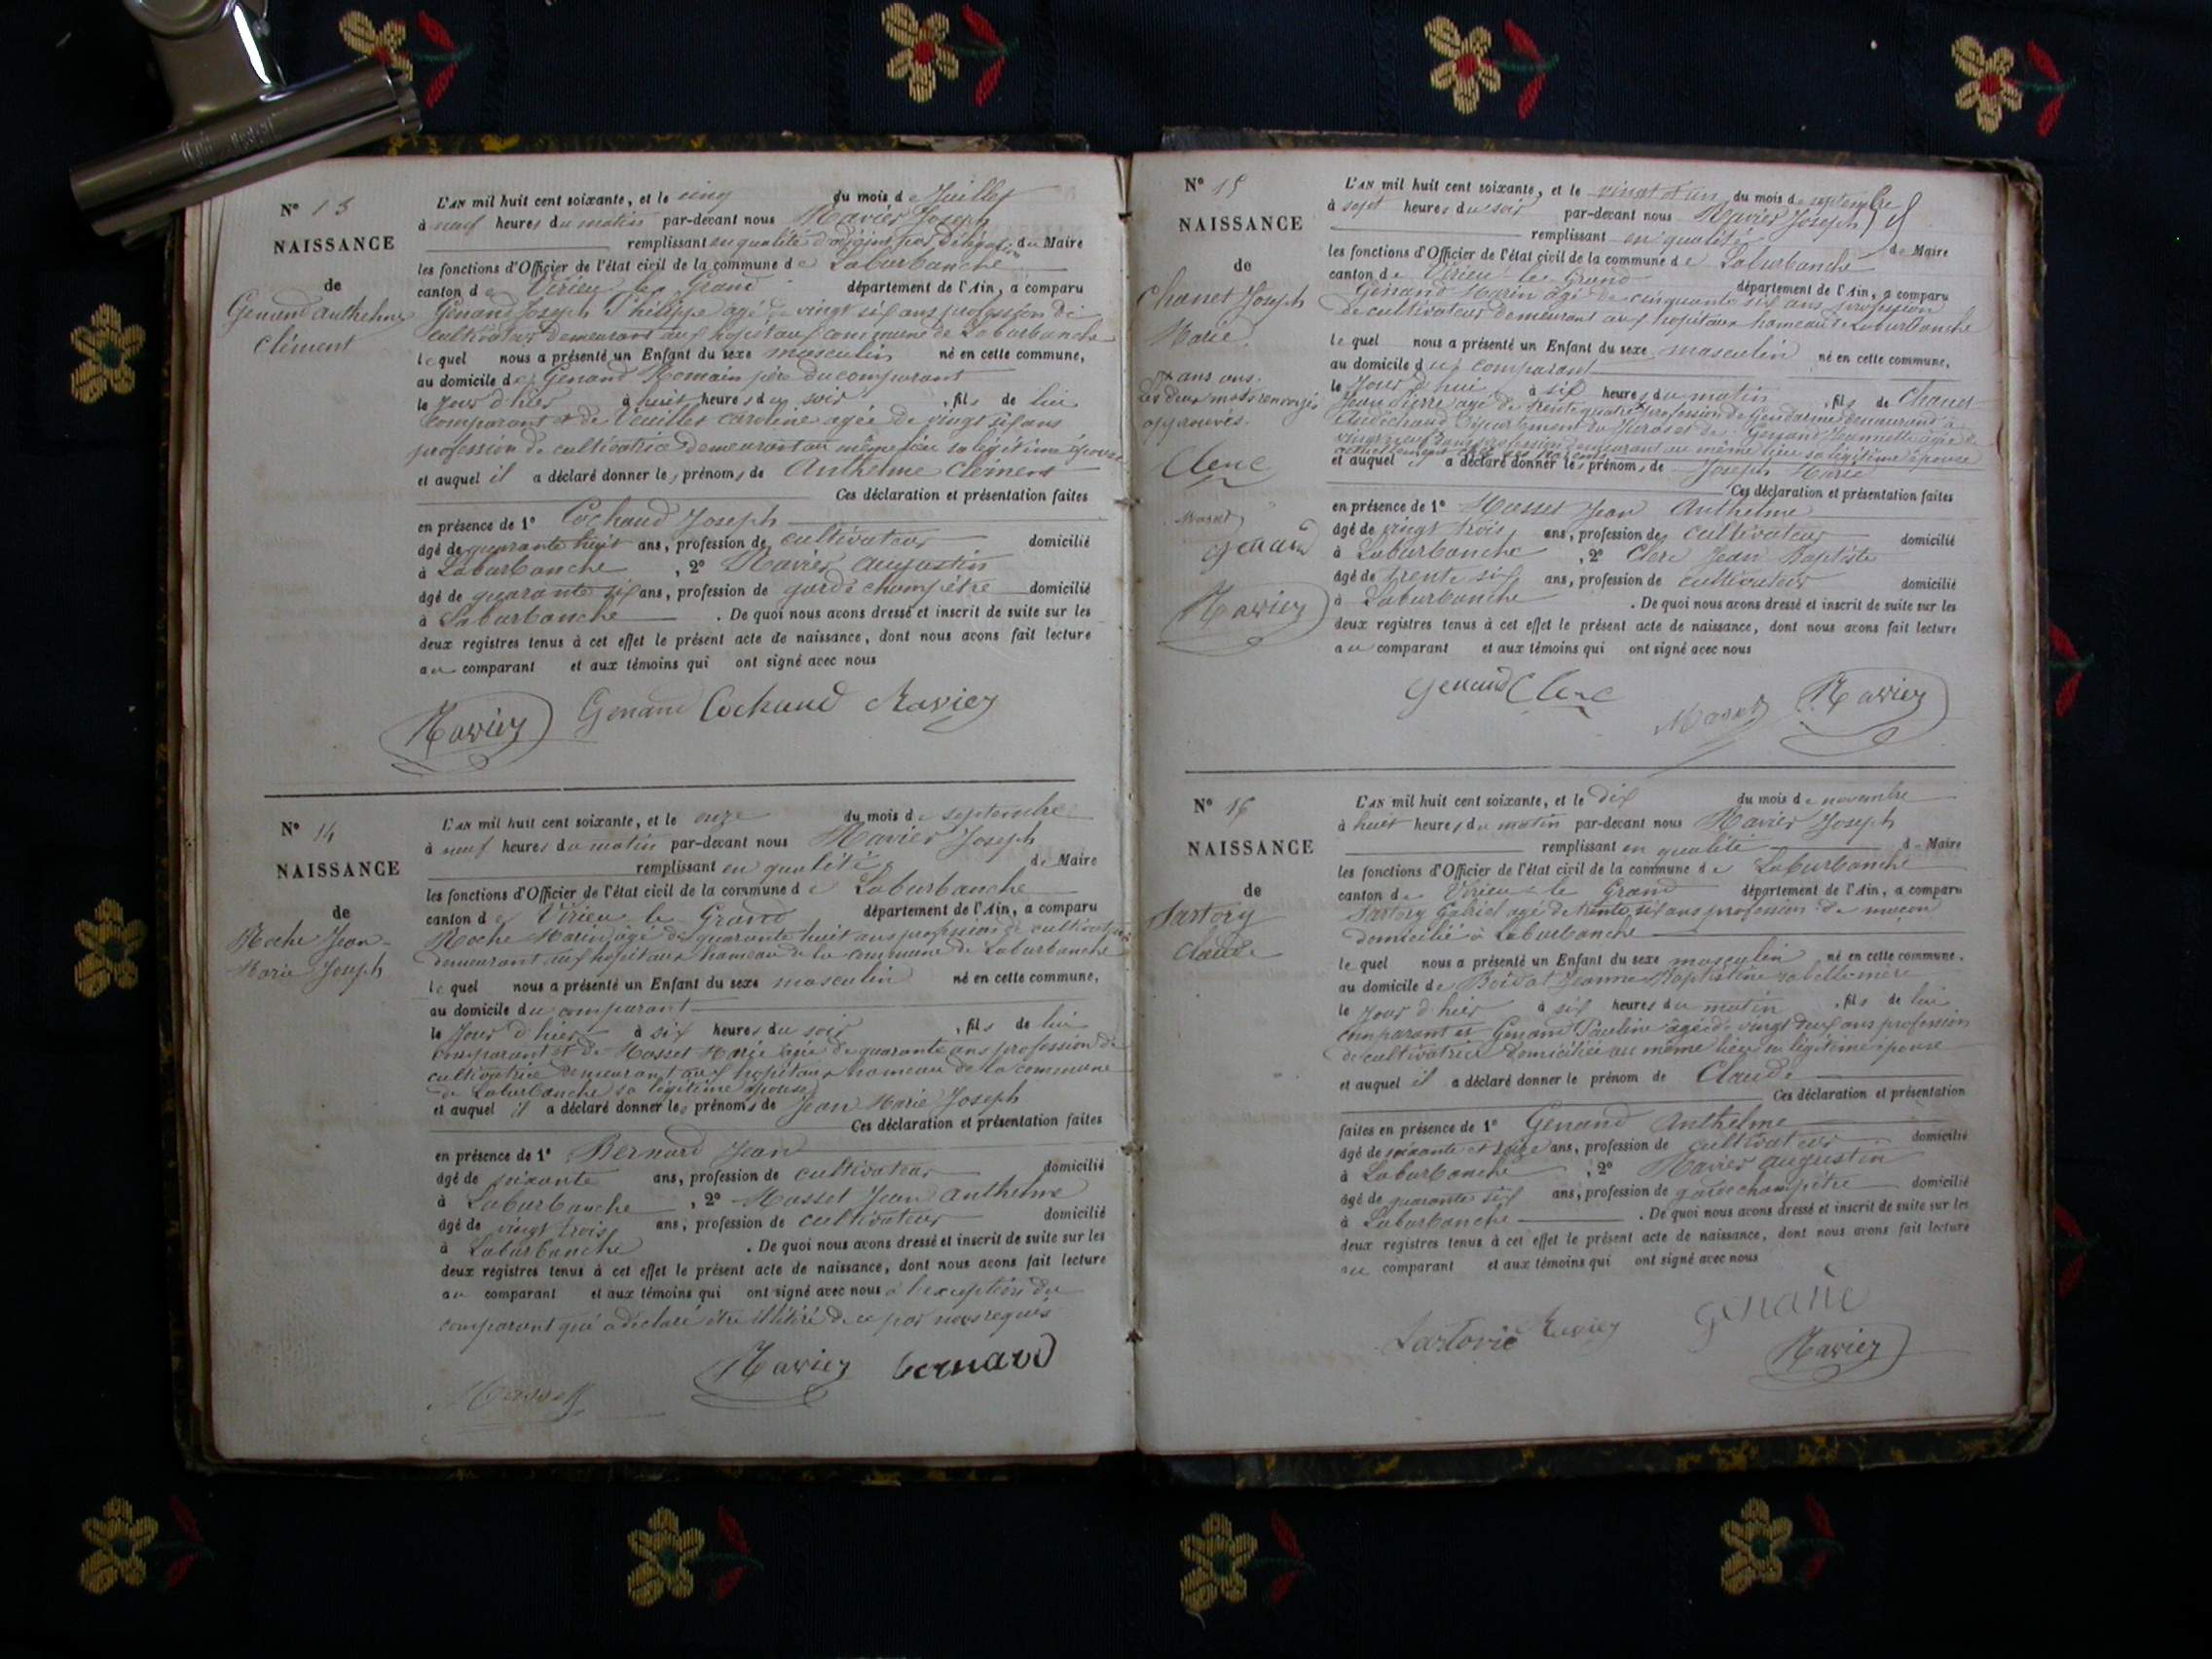 N° 13
NAISSANCE
de
Genand Anthelme
Clément
L'AN mil huit cent soixante, et le cinq du mois de Juillet
à neuf heures du matin par-devant nous Ravier Joseph
remplissant en qualité d'adjoint par Délégat.on du Maire
les fonctions d'Officier de l'état civil de la commune de Laburbanche
canton de Virieu le Grand département de l'Ain, a comparu
Genand Joseph Philippe âgé de vingt six ans profession de
cultivateur demeurant aux hopitaux commune de Laburbanche
lequel nous a présenté un Enfant du sexe masculin né en cette commune,
au domicile de Genand Romain père du comparant
le jour d'hier à huit heures du soir, fils de lui
comparant et de Veuillet Caroline agée de vingt six ans
profession de cultivatrice demeurant au même lieu sa légitime épouse
et auquel il a déclaré donner les prénoms de Anthelme Clément
Ces déclaration et présentation faites
en présence de 1° Cochaud Joseph
âgé de quarante huit ans, profession de cultivateur domicilié
à Laburbanche, 2° Ravier Augustin
âgé de quarante six ans, profession de garde champêtre domicilié
à Laburbanche. De quoi nous avons dressé et inscrit de suite sur les
deux registres tenus à cet effet le présent acte de naissance, dont nous avons fait lecture
au comparant et aux témoins qui ont signé avec nous
Ravier Genand Cochaud Ravier
N° 14
NAISSANCE
de
Roche Jean-
Marie Joseph
L'AN mil huit cent soixante, et le onze du mois de septembre
à neuf heures du matin par-devant nous Ravier Joseph
remplissant en qualité de Maire
les fonctions d'Officier de l'état civil de la commune de Laburbanche
canton de Virieu le Grand département de l'Ain, a comparu
Roche Marin âgé de quarante huit ans profession de cultivateur
demeurant aux hopitaux hameau de la commune de Laburbanche
lequel nous a présenté un Enfant du sexe masculin né en cette commune,
au domicile du comparant
le jour d'hier à six heures du soir, fils de lui
comparant et de Masset Marie agée de quarante ans profession de
cultivatrice demeurant aux hopitaux hameau de la commune
de Laburbanche sa légitime épouse
et auquel il a déclaré donner les prénoms de Jean Marie Joseph
Ces déclaration et présentation faites
en présence de 1° Bernard Jean
âgé de soixante ans, profession de cultivateur domicilié
à Laburbanche, 2° Masset Jean Anthelme
âgé de vingt trois ans, profession de cultivateur domicilié
à Laburbanche. De quoi nous avons dressé et inscrit de suite sur les
deux registres tenus à cet effet le présent acte de naissance, dont nous avons fait lecture
au comparant et aux témoins qui ont signé avec nous à l'exception du
comparant qui a déclaré être illitéré de ce par nous requis
Ravier bernard
Masset
N° 15
NAISSANCE
de
Chanet Joseph
Marie.
ans ans.
Les deux mots renvoyés
approuvés.
Clerc
Masset
Genand
Ravier
L'AN mil huit cent soixante, et le vingt un du mois de septembre
à sept heures du soir par-devant nous Ravier Joseph
remplissant en qualité de Maire
les fonctions d'Officier de l'état civil de la commune de Laburbanche
canton de Virieu le Grand département de l'Ain, a comparu
Genand Marin âgé de cinquante six ans profession
de cultivateur demeurant aux hopitaux hameau de Laburbanche
lequel nous a présenté un Enfant du sexe masculin né en cette commune,
au domicile du comparant
le jour d'hui à six heures du matin, fils de Chanet
Jean Pierre agé de trente quatre profession de Gendarme demeurant à
département du et de Genand Jeannette agée de
vingt neuf ans profession demeurant au même lieu sa légitime épouse
actuellement chez ses parents
et auquel il a déclaré donner les prénoms de Joseph Marie
Ces déclaration et présentation faites
en présence de 1° Masset Jean Anthelme
âgé de vingt trois ans, profession de cultivateur domicilié
à Laburbanche, 2° Clerc Jean Baptiste
âgé de trente six ans, profession de cultivateur domicilié
à Laburbanche. De quoi nous avons dressé et inscrit de suite sur les
deux registres tenus à cet effet le présent acte de naissance, dont nous avons fait lecture
au comparant et aux témoins qui ont signé avec nous
Genand Clerc
Masset Ravier
N° 16
NAISSANCE
de
Sartory
Claude
L'AN mil huit cent soixante, et le dix du mois de novembre
à huit heures du matin par-devant nous Ravier Joseph
remplissant en qualité de Maire
les fonctions d'Officier de l'état civil de la commune de Laburbanche
canton de Virieu le Grand département de l'Ain, a comparu
Sartory Gabriel agé de trente six ans profession de maçon
domicilié à Laburbanche
lequel nous a présenté un Enfant du sexe masculin né en cette commune,
au domicile de Jeanne Baptistine sa belle mère
le jour d'hier à six heures du matin, fils de lui
comparant et Genand Pauline âgée de vingt ans profession
de cultivatrice domiciliée au même lieu sa légitime épouse
et auquel il a déclaré donner le prénom de Claude
Ces déclaration et présentation
faites en présence de 1° Genand Anthelme
âgé de soixante et seize ans, profession de cultivateur domicilié
à Laburbanche, 2° Ravier Augustin
âgé de quarante six ans, profession de garde champêtre domicilié
à Laburbanche. De quoi nous avons dressé et inscrit de suite sur les
deux registres tenus à cet effet le présent acte de naissance, dont nous avons fait lecture
au comparant et aux témoins qui ont signé avec nous
Sartorio Ravier Genand
Ravier